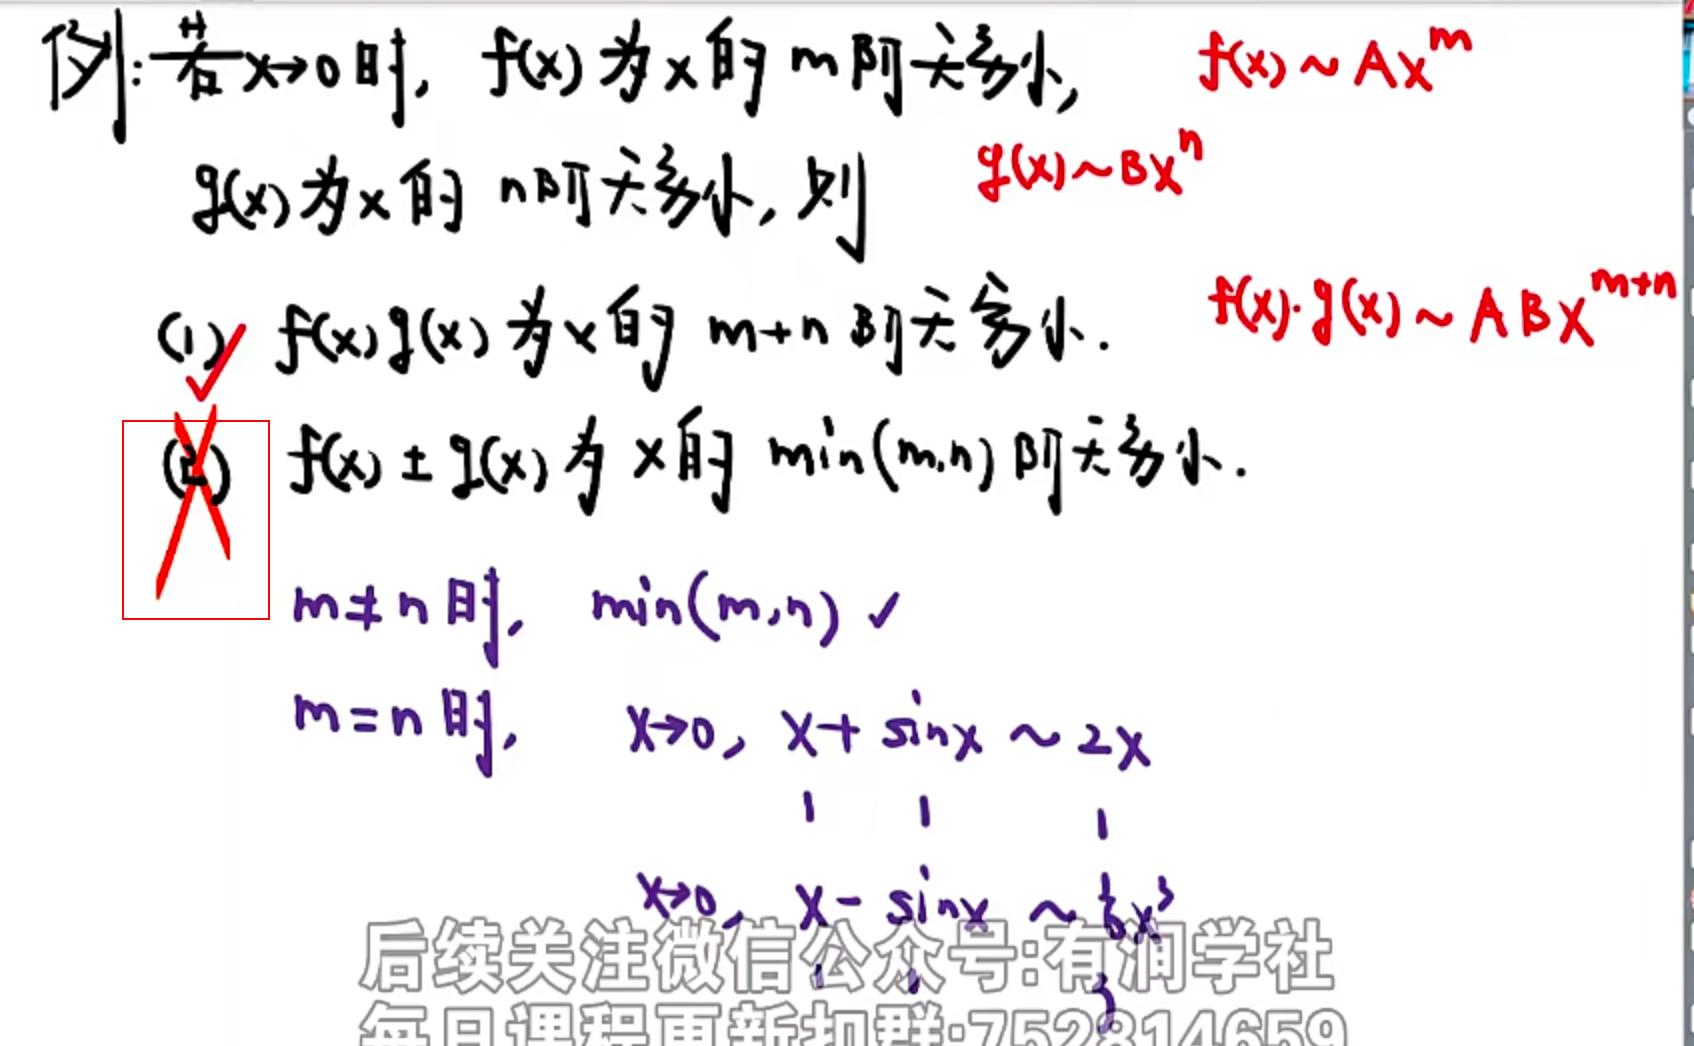 例: 若 x→0 时, f(x) 为 x 的 m 阶无穷小, f(x) ~ Ax^m
g(x) 为 x 的 n 阶无穷小, 则 g(x) ~ Bx^n
(1) f(x)g(x) 为 x 的 m+n 阶无穷小. f(x)·g(x) ~ ABx^{m+n}
(2) f(x) ± g(x) 为 x 的 min(m,n) 阶无穷小.
m≠n 时, min(m,n) ✓
m=n 时, x→0, x+sinx ~ 2x
1 1 1
x→0, x-sinx ~ 1/6 x^3
1 1 3
后续关注微信公众号:有润学社
每日课程更新扣群:752814659